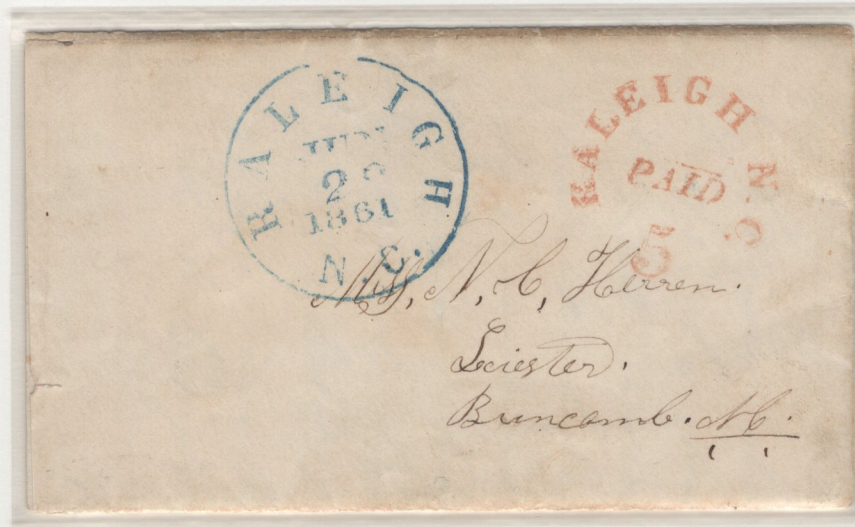 RALEIGH
JUN
1861
N.C.
RALEIGH N.C.
PAID
5
N. C, Herren.
Leiester.
Buncomb. N.C.